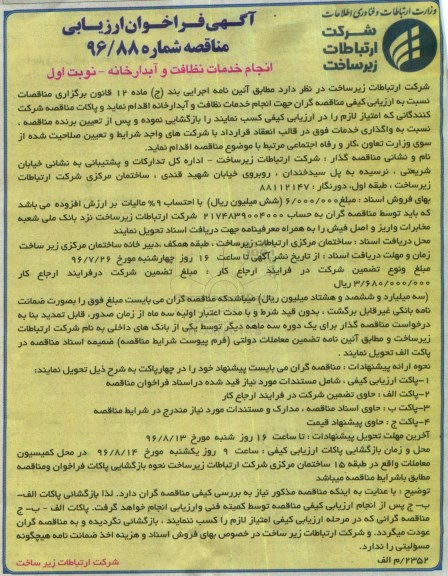 وزارت ارتباطات و فناوری اطلاعات
شرکت
ارتباطات
زیرساخت
آگهی فراخوان ارزیابی
مناقصه شماره ۹۶/۸۸
انجام خدمات نظافت و آبدارخانه - نوبت اول
شرکت ارتباطات زیرساخت در نظر دارد مطابق آئین نامه اجرایی بند (ج) ماده ۱۲ قانون برگزاری مناقصات
نسبت به ارزیابی کیفی مناقصه گران جهت انجام خدمات نظافت و آبدارخانه اقدام نماید و پاکات مناقصه شرکت
کنندگانی که امتیاز لازم را در ارزیابی کیفی کسب نمایند را بازگشایی نموده و پس از تعیین برنده مناقصه ،
نسبت به واگذاری خدمات فوق در قالب انعقاد قرارداد با شرکت های واجد شرایط و تعیین صلاحیت شده از
سوی وزارت تعاون ،کار و رفاه اجتماعی مرتبط با موضوع مناقصه اقدام نماید.
نام و نشانی مناقصه گذار : شرکت ارتباطات زیرساخت - اداره کل تدارکات و پشتیبانی به نشانی خیابان
شریعتی ، نرسیده به پل سیدخندان ، روبروی خیابان شهید قندی ، ساختمان مرکزی شرکت ارتباطات
زیرساخت ، طبقه اول، دورنگار : ۸۸۱۱۲۱۴۷
بهای فروش اسناد : مبلغ ۶/۰۰۰/۰۰۰ (شش میلیون ریال) با احتساب ۹% مالیات بر ارزش افزوده می باشد
که باید توسط مناقصه گران به حساب ۲۱۷۴۸۳۹۰۰۴۰۰۰ شرکت ارتباطات زیرساخت نزد بانک ملی شعبه
مخابرات واریز و اصل فیش را به همراه معرفینامه جهت دریافت اسناد تحویل نمایند
محل دریافت اسناد : ساختمان مرکزی ارتباطات زیرساخت ، طبقه همکف ،دبیر خانه ساختمان مرکزی زیر ساخت
زمان و مهلت دریافت اسناد : از تاریخ نشر آگهی تا ساعت ۱۶ روز چهارشنبه مورخ ۹۶/۷/۲۶
مبلغ ونوع تضمین شرکت در فرایند ارجاع کار : مبلغ تضمین شرکت درفرایند ارجاع کار
۳/۶۸۰/۰۰۰/۰۰۰ ریال
(سه میلیارد و ششصد و هشتاد میلیون ریال) میباشدکه مناقصه گران می بایست مبلغ فوق را بصورت ضمانت
نامه بانکی غیرقابل برگشت ، بدون قید شرط و با مدت اعتبار اولیه سه ماه از زمان صدور، قابل تمدید بنا به
درخواست مناقصه گذار برای یک دوره سه ماهه دیگر توسط یکی از بانک های داخلی به نام شرکت ارتباطات
زیرساخت و مطابق آئین نامه تضمین معاملات دولتی (فرم پیوست شرایط مناقصه) ضمیمه اسناد مناقصه در
پاکت الف تحویل نمایند .
نحوه ارائه پیشنهادات : مناقصه گران می بایست پیشنهاد خود را در چهارپاکت به شرح ذیل تحویل نمایند:
۱-پاکت ارزیابی کیفی ، شامل مستندات مورد نیاز قید شده دراسناد فراخوان مناقصه
۲-پاکت الف : حاوی تضمین شرکت در فرایند ارجاع کار
۳-پاکت ب : حاوی اسناد مناقصه ، مدارک و مستندات مورد نیاز مندرج در شرایط مناقصه
۴-پاکت ج : حاوی پیشنهاد قیمت
آخرین مهلت تحویل پیشنهادات : تا ساعت ۱۶ روز شنبه مورخ ۹۶/۸/۱۳
محل و زمان بازگشایی پاکات ارزیابی کیفی : ساعت ۹ روز یکشنبه مورخ ۹۶/۸/۱۴ در محل کمیسیون
معاملات واقع در طبقه ۱۵ ساختمان مرکزی شرکت ارتباطات زیرساخت نحوه بازگشایی پاکات فراخوان ومناقصه
مطابق باشرایط مناقصه میباشد
توضیح : با عنایت به اینکه مناقصه مذکور نیاز به بررسی کیفی مناقصه گران دارد. لذا بازگشائی پاکات الف-
ب- ج پس از انجام ارزیابی کیفی مناقصه توسط کمیته فنی وارزیابی انجام خواهد گرفت. پاکات الف - ب- ج
مناقصه گرانی که در مرحله ارزیابی کیفی امتیاز لازم را کسب ننمایند ، بازگشائی نگردیده و به مناقصه گران
عودت میگردد. و شرکت ارتباطات زیر ساخت در خصوص بهای فروش اسناد و هزینه اخذ ضمانت نامه هیچگونه
مسؤلیتی را ندارد.
۲۳۵۲/م الف
شرکت ارتباطات زیر ساخت